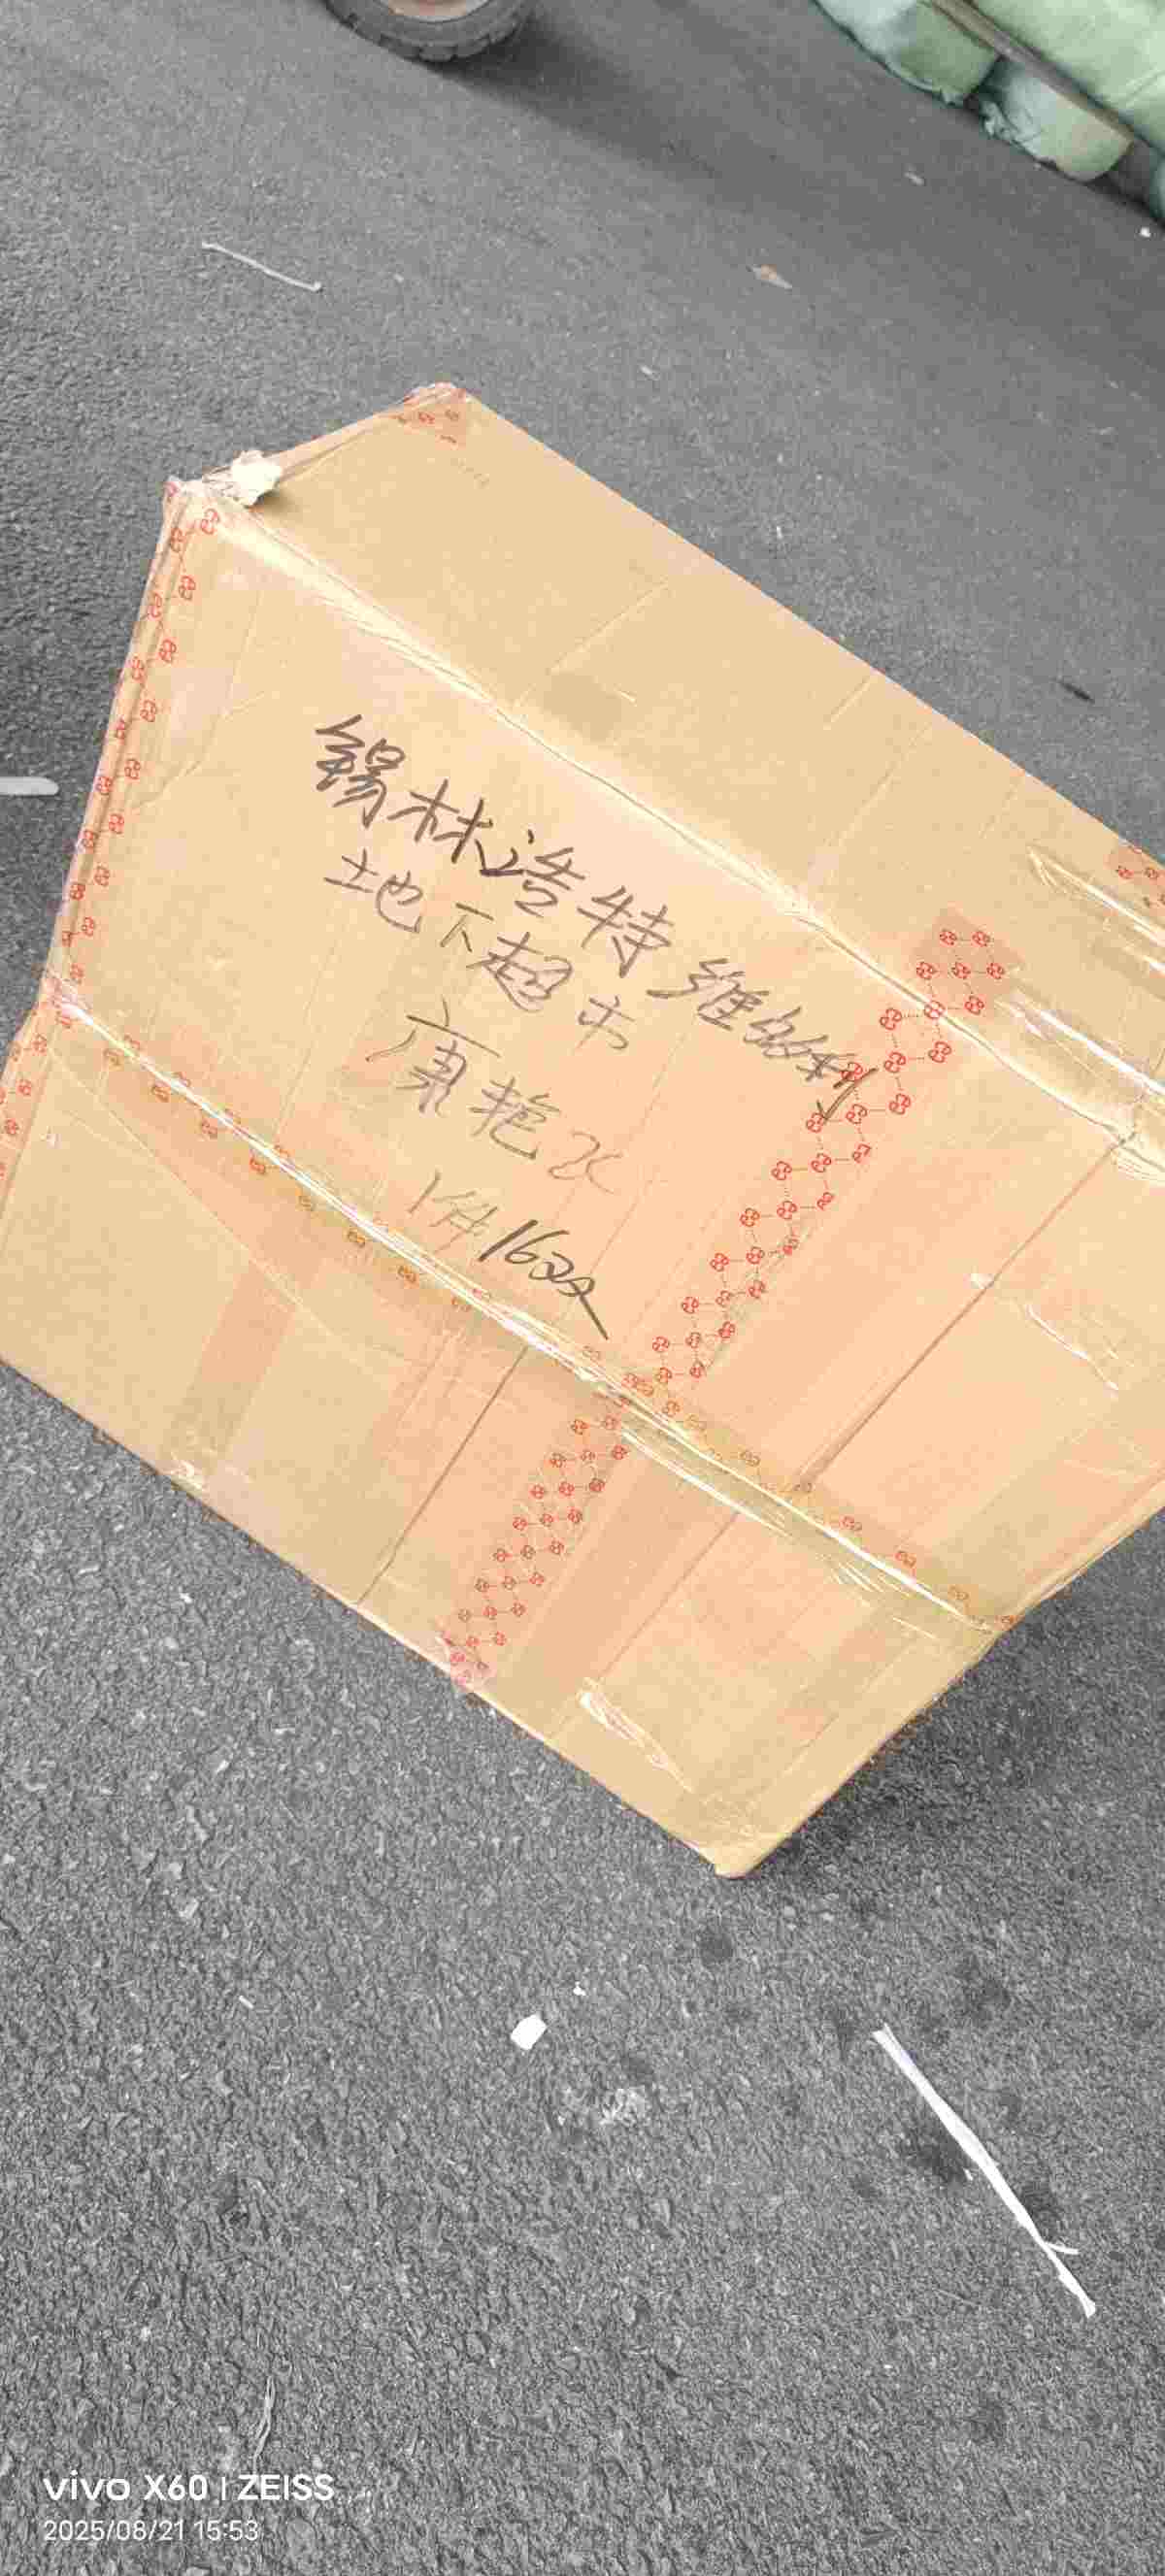 锡林浩特 维多利
地下超市
康艳飞
1件162双
vivo X60 | ZEISS
2025/08/21 15:53